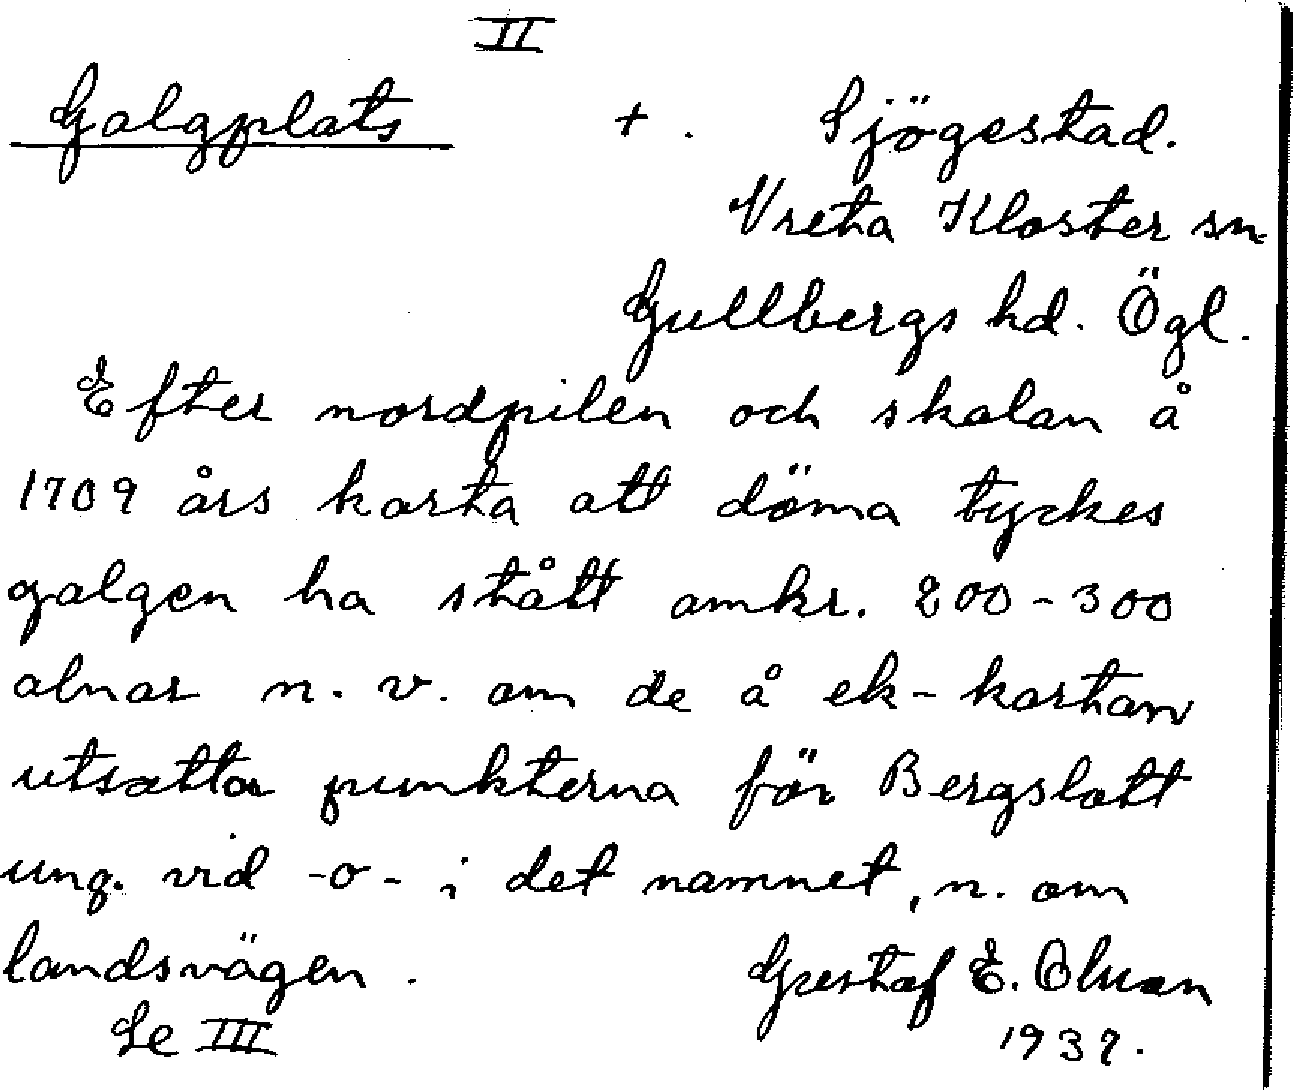 II
Galgplats + . Sjögestad.
Vreta Kloster sn
Gullbergs hd. Ögl.
Efter nordpilen och skalan å
1709 års karta att döma tyckes
galgen ha stått omkr. 200-300
alnar n. v. om de å ek-kartan
utsatta punkterna för Bergslott
ung. vid -o- i det namnet, n. om
landsvägen. Gustaf E. Olsson
Se III 1937.